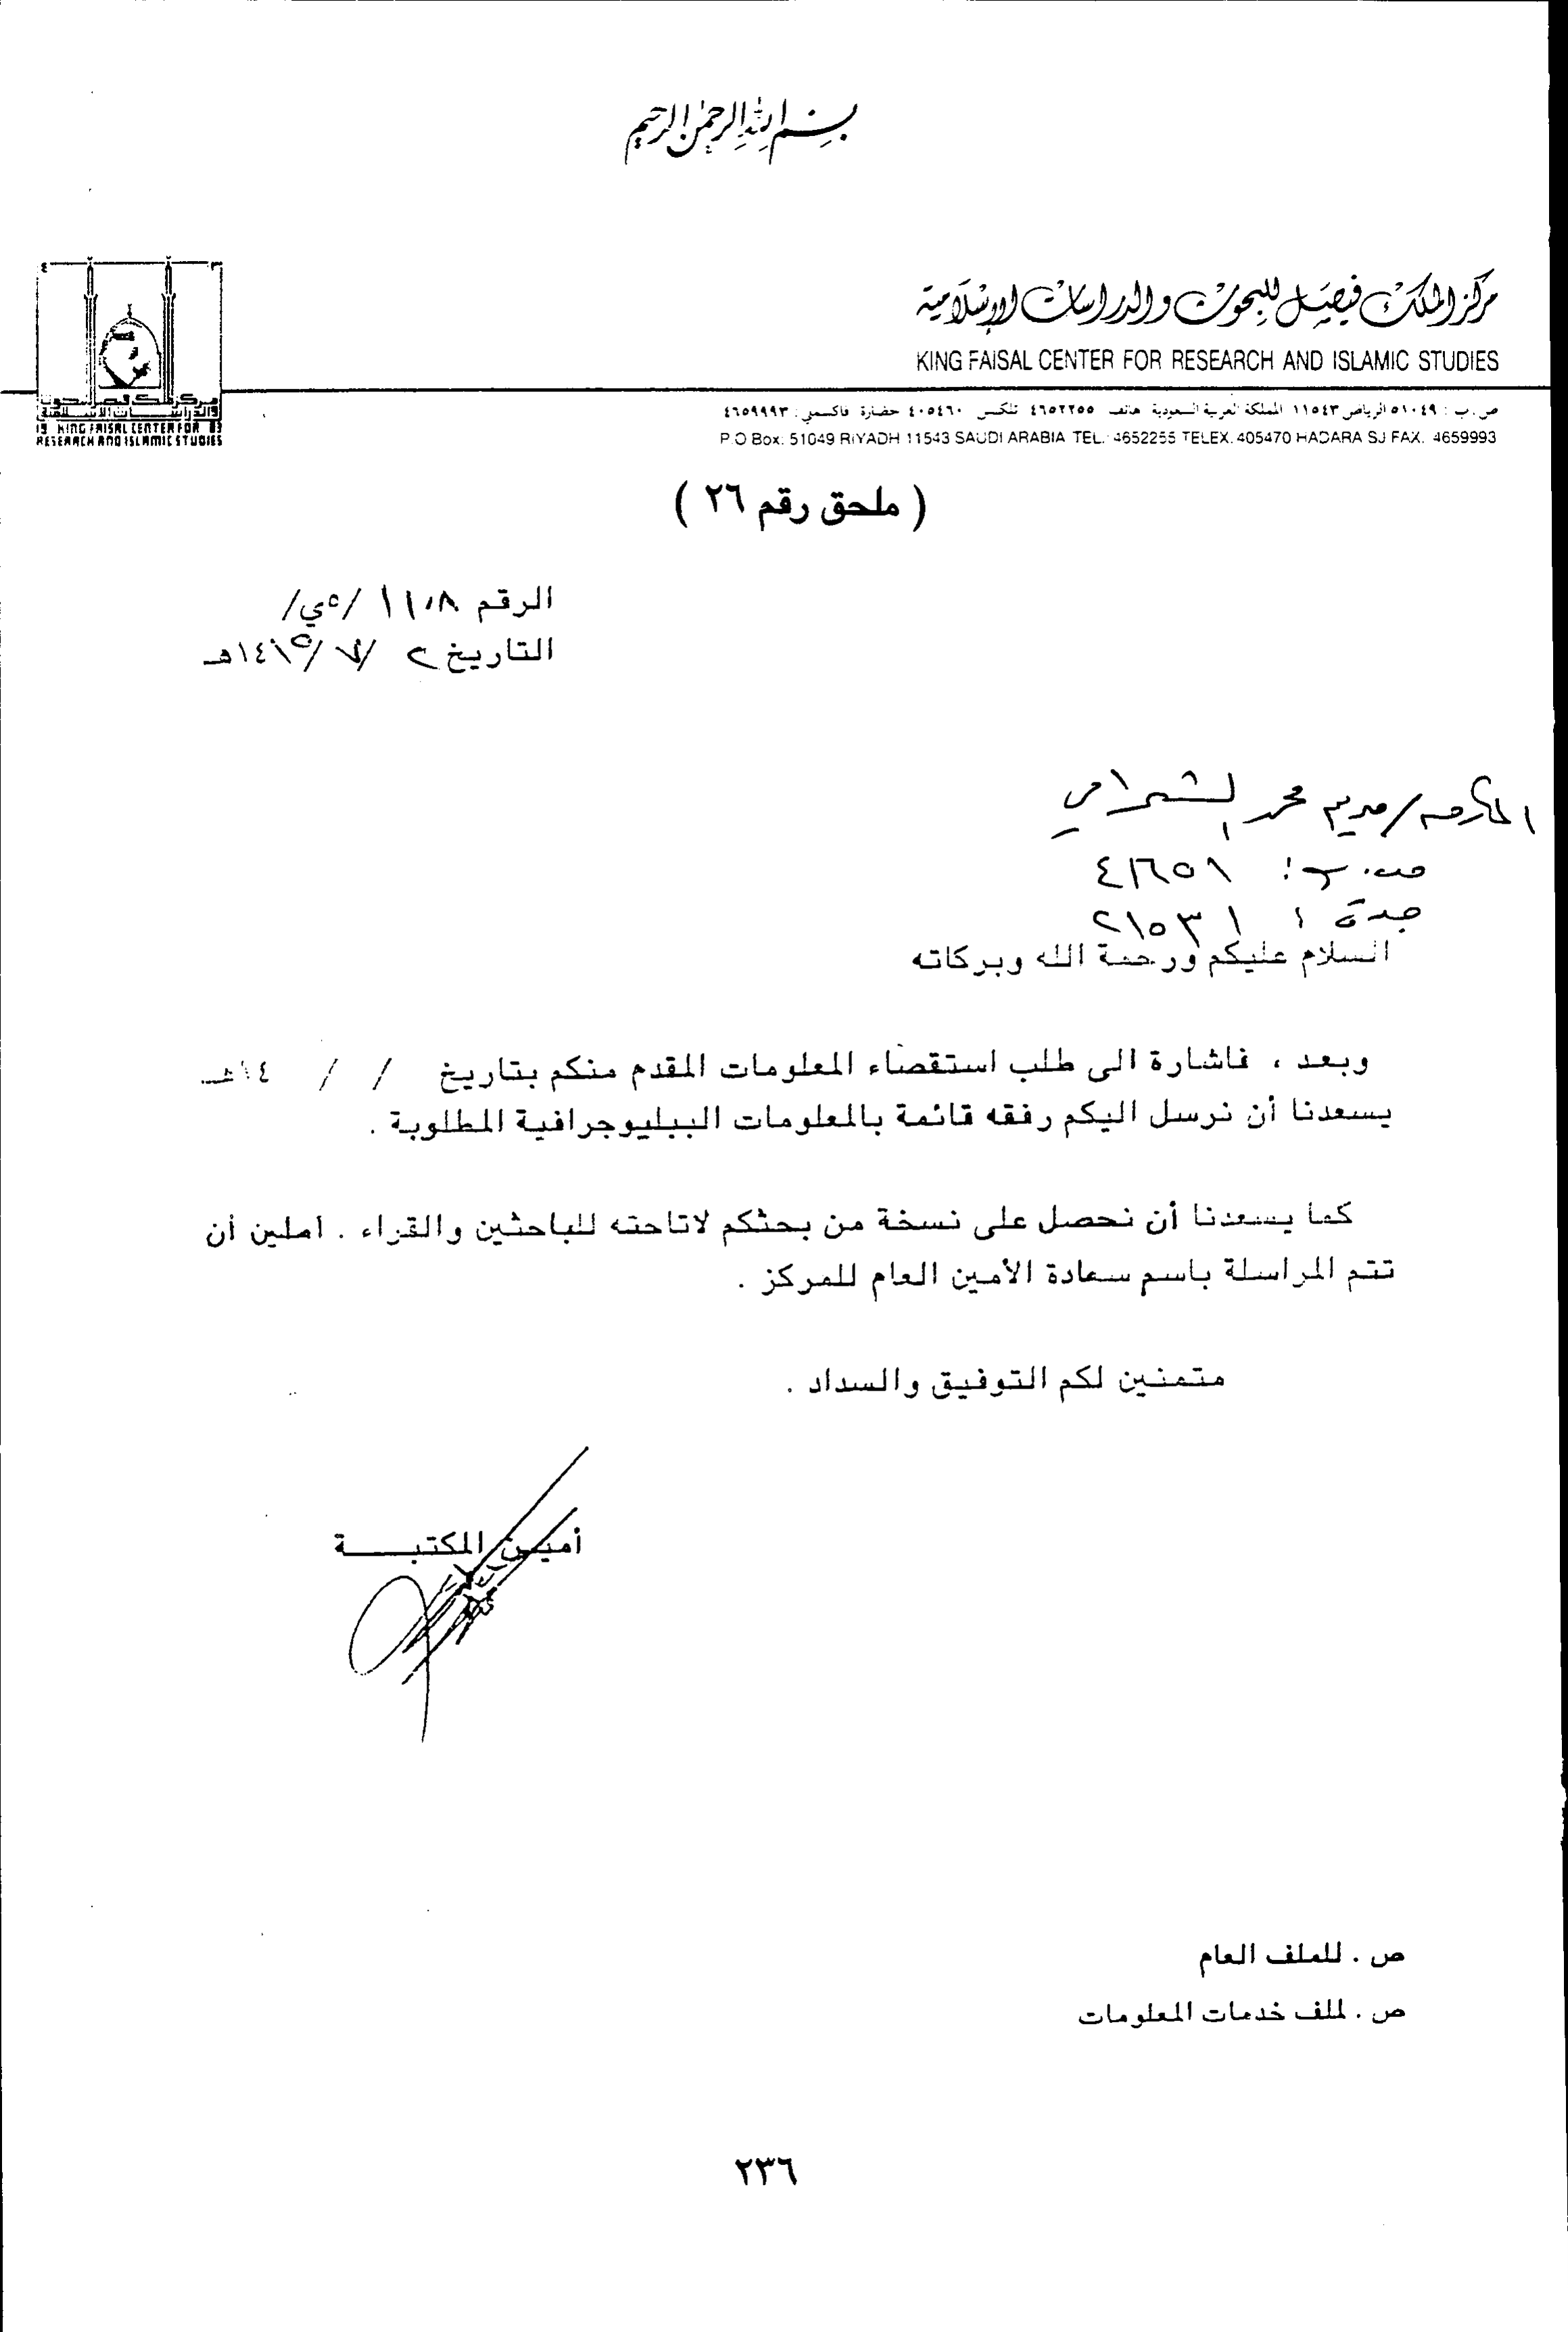 بسم الله الرحمن الرحيم
مركز الملك فيصل للبحوث والدراسات الإسلامية
KING FAISAL CENTER FOR RESEARCH AND ISLAMIC STUDIES
ص.ب : ٥١٠٤٩ الرياض ١١٥٤٣ المملكة العربية السعودية هاتف ٤٦٥٢٢٥٥ تلكس ٤٠٥٤٦٠ حضارة فاكسملي : ٤٦٥٩٩٩٣
P.O Box: 51049 RIYADH 11543 SAUDI ARABIA TEL.: 4652255 TELEX. 405470 HADARA SJ FAX. 4659993
مركز الملك فيصل للبحوث
والدراسات الإسلامية
19 KING FAISAL CENTER FOR 83
RESEARCH AND ISLAMIC STUDIES
( ملحق رقم ٢٦ )
الرقم ١١٠٨ /٥ي/
التاريخ ٢ /٧/ ١٤١٥هـ
المكرمه/ مريم محمد
ص.ب: ٤١٦٥١
جدة : ٢١٥٣١
السلام عليكم ورحمة الله وبركاته
وبعد ، فاشارة الى طلب استقصاء المعلومات المقدم منكم بتاريخ / / ١٤هـ
يسعدنا أن نرسل اليكم رفقه قائمة بالمعلومات الببليوجرافية المطلوبة .
كما يسعدنا أن نحصل على نسخة من بحثكم لاتاحته للباحثين والقراء . املين أن
تتم المراسلة باسم سعادة الأمين العام للمركز .
متمنين لكم التوفيق والسداد .
أميـن المكتبـــــة
ص . للملف العام
ص . لملف خدمات المعلومات
٢٣٦